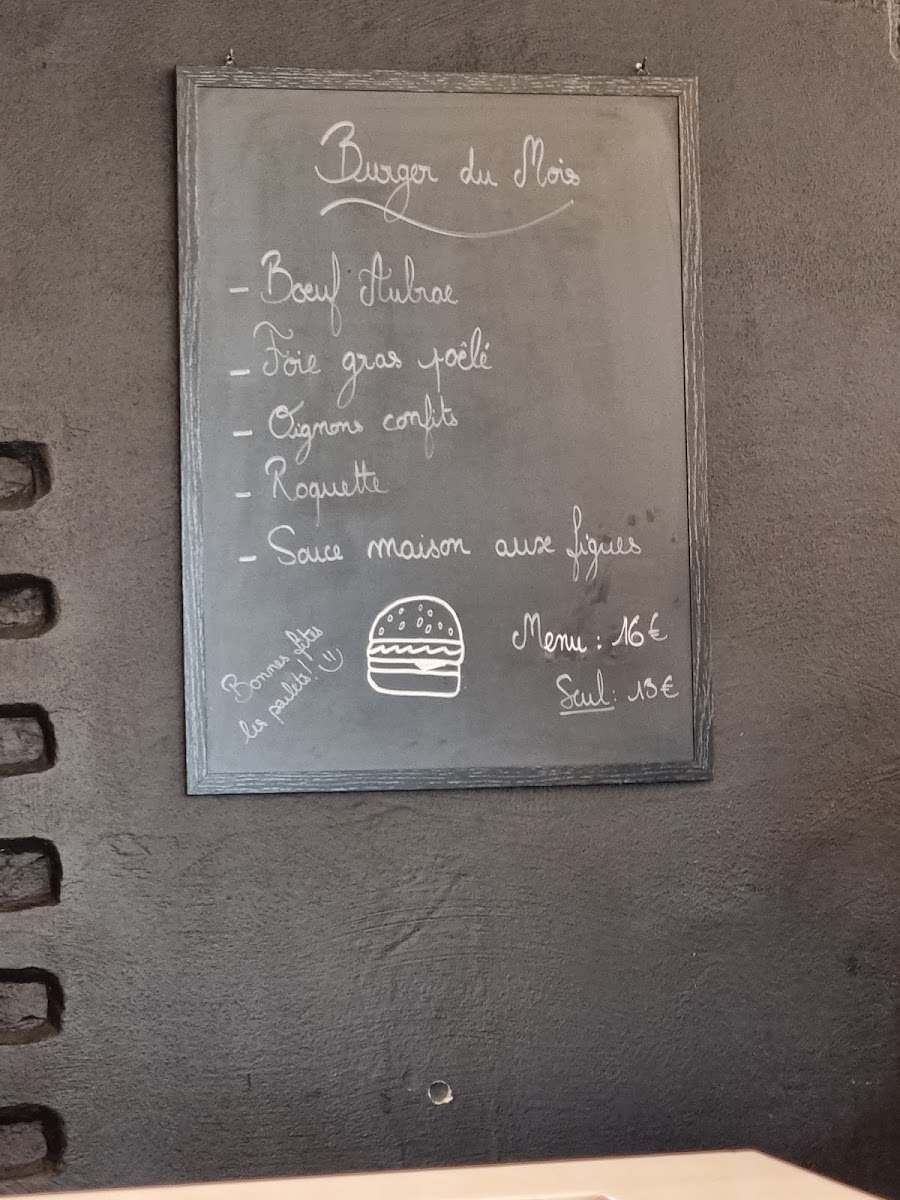 Burger du Mois
- Boeuf Aubrac
- Foie gras poêlé
- Oignons confits
- Roquette
- Sauce maison aux figues
Menu : 16€
Seul : 13€
Bonnes fêtes
les poulets !